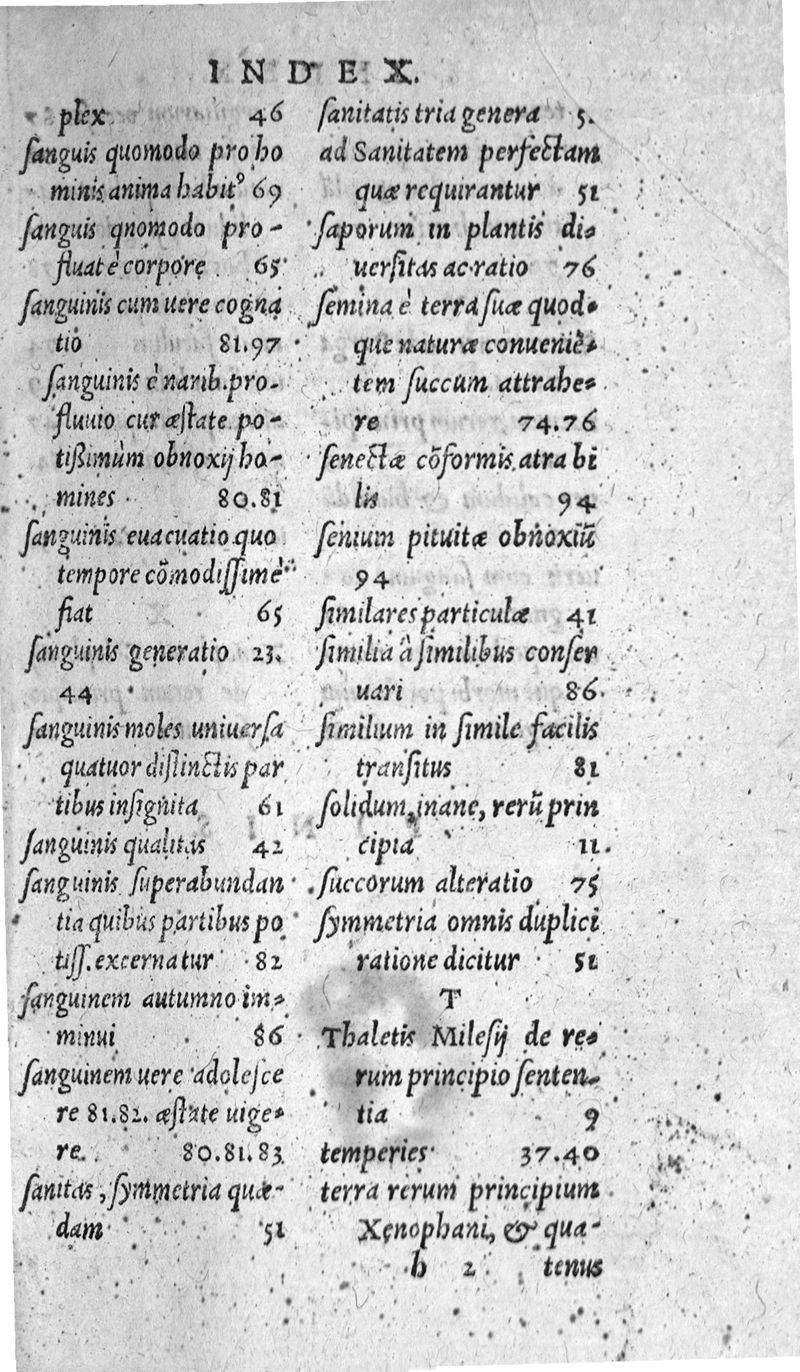 INDEX.
plex 46
ſanguis quomodo pro ho
minis anima habitꝰ 69
ſanguis qnomodo pro-
fluat è corpore 65
ſanguinis cum uere cogna
tio 81.97
ſanguinis è narib. pro-
fluuio cur æſtate po-
tißimùm obnoxij ho-
mines 80.81
ſanguinis euacuatio quo
tempore cōmodiſſimè
fiat 65
ſanguinis generatio 23.
44
ſanguinis moles uniuerſa
quatuor diſtinctis par
tibus inſignita 61
ſanguinis qualitas 42
ſanguinis ſuperabundan
tia quibus partibus po
tiſſ. excernatur 82
ſanguinem autumno im-
minui 86
ſanguinem uere adoleſce
re 81.82. æſtate uige-
re. 80.81.83
ſanitas, ſymmetria quæ-
dam 51
ſanitatis tria genera 5.
ad Sanitatem perfectam
quæ requirantur 51
ſaporum in plantis di-
uerſitas ac ratio 76
ſemina è terra ſuæ quod-
que naturæ conueniē-
tem ſuccum attrahe-
re 74.76
ſenectæ cōformis atra bi
lis 94
ſenium pituitæ obnoxiū
94
ſimilares particulæ 41
ſimilia à ſimilibus conſer
uari 86.
ſimilium in ſimile facilis
tranſitus 81
ſolidum, inane, rerū prin
cipia 11.
ſuccorum alteratio 75
ſymmetria omnis duplici
ratione dicitur 51
T
Thaletis Mileſij de re-
rum principio ſenten-
tia 9
temperies 37.40
terra rerum principium
Xenophani, & qua-
h 2 tenus